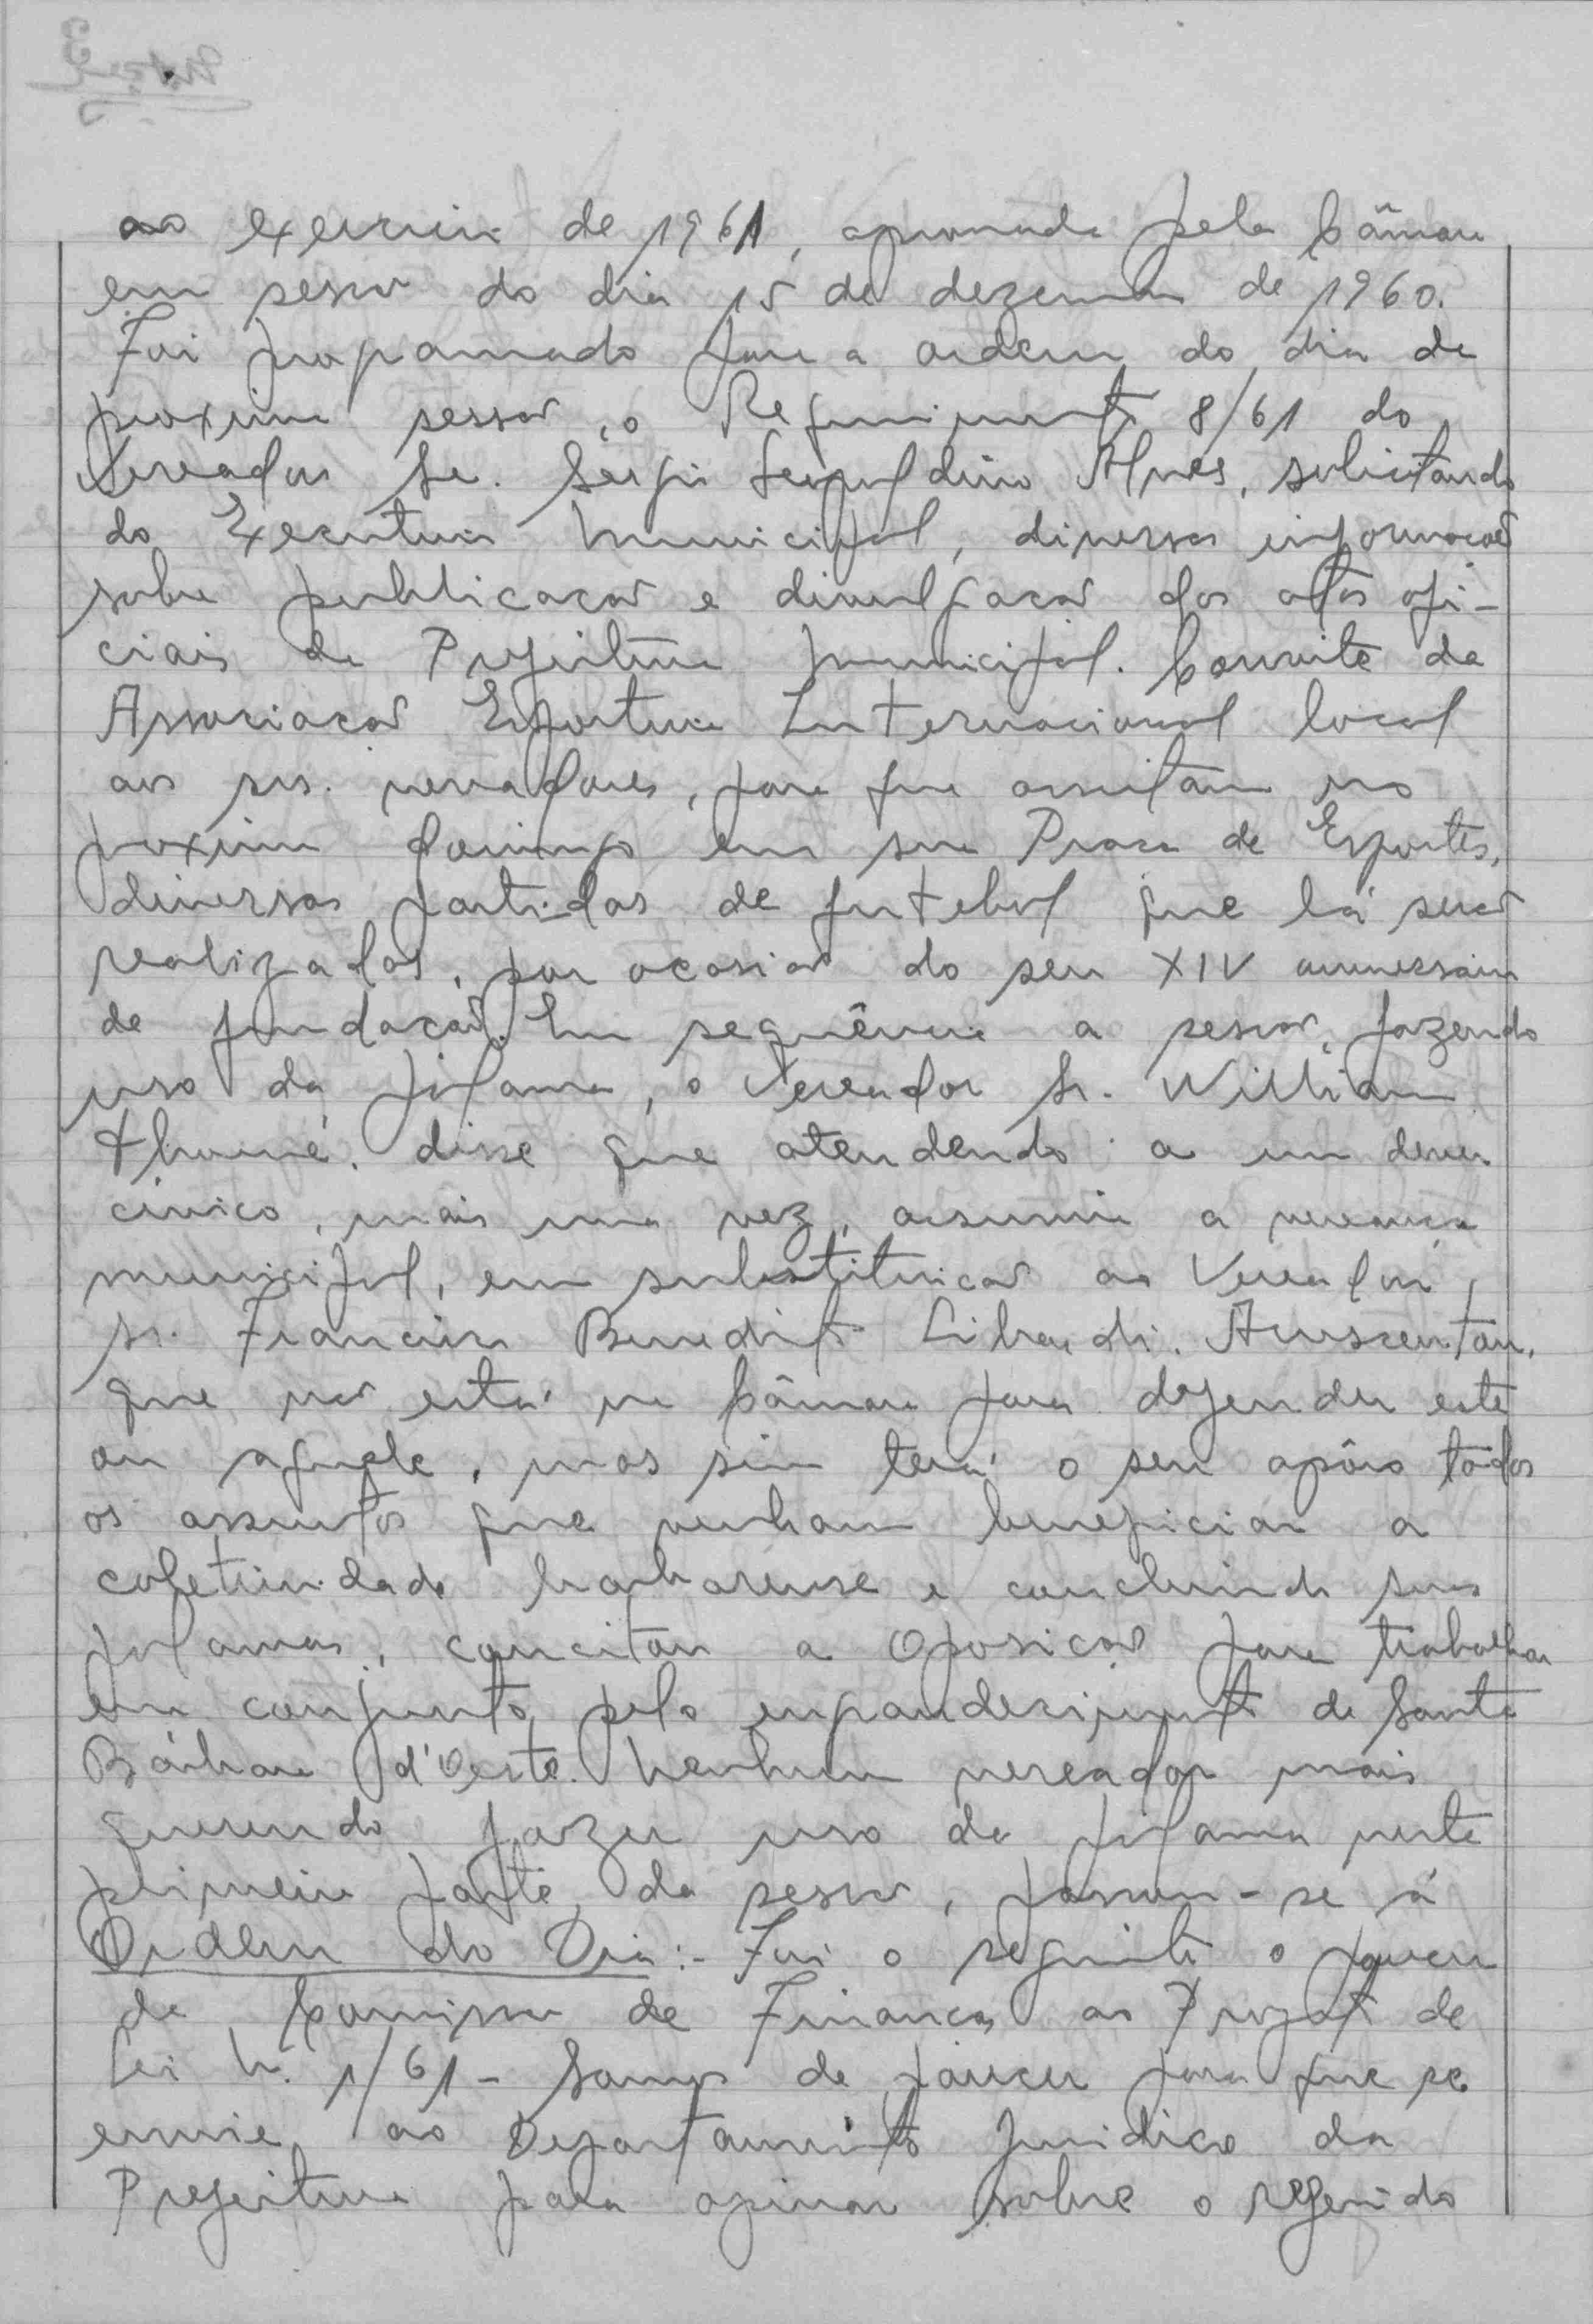 ao exercicio de 1961, aprovada pela Câmara
em sessão do dia 15 de dezembro de 1960.
Foi programado para a ordem do dia da
proxima sessão, o Requerimento 8/61 do
Vereador Sr. Sérgio Leopoldino Alves, solicitando
do Executivo Municipal, diversas informações
sobre publicação e divulgação dos atos ofi-
ciais da Prefeitura Municipal. Convite da
Associação Esportiva Internacional local
aos srs. vereadores, para que assistam no
proximo domingo em sua Praça de Esportes,
diversas partidas de futebol que lá serão
realizadas, por ocasião do seu XIV aniversário
de fundação. Em sequência a sessão, fazendo
uso da palavra, o Vereador Sr. Willian
Thomé, disse que atendendo a um dever
civico, mais uma vez, assumia a vereança
municipal, em substituição ao Vereador,
sr. Francisco Benedito Libardi. Acrescentou,
que não está na Câmara para defender este
ou aquele, mas sim terá o seu apôio todos
os assuntos que venham beneficiar a
coletividade barbarense e concluindo suas
palavras, concitou a Oposição para trabalhar
em conjunto, pelo engrandecimento de Santa
Bárbara d'Oeste. Nenhum vereador mais
querendo fazer uso da palavra nesta
primeira parte da sessão, passou-se á
Ordem do Dia:- Foi o seguinte o parecer
da Comissão de Finanças ao Projeto de
Lei N. 1/61 - Somos de parecer para que se
envie ao Departamento Juridico da
Prefeitura para opinar sobre o referido